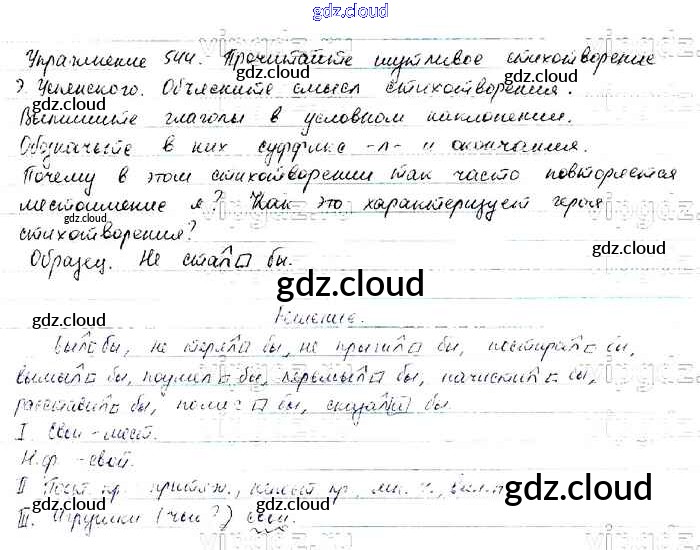 gdz.cloud
Упражнение 544. Прочитайте шутливое стихотворение
gdz.cloud
Э. Успенского. Объясните смысл стихотворения.
gdz.cloud
Выпишите глаголы в условном наклонении.
gdz.cloud
Обозначьте в них суффикс -л- и окончания.
gdz.cloud
Почему в этом стихотворении так часто повторяется
местоимение я? Как это характеризует героя
gdz.cloud
стихотворения?
gdz.cloud
Образец. Не стал бы.
gdz.cloud
gdz.cloud
Решение.
gdz.cloud
был бы, не терял бы, не прыгал бы, постирал бы,
вымыл бы, помыл бы, бы, начистил бы,
gdz.cloud
расставил бы, полил бы, сказал бы.
gdz.cloud
I. Свои - мест.
Н.ф. - свой.
gdz.cloud
II Пост. пр. притяж., пр., мн. ч.,
gdz.cloud
III. Игрушки (чьи?) свои.
gdz.cloud